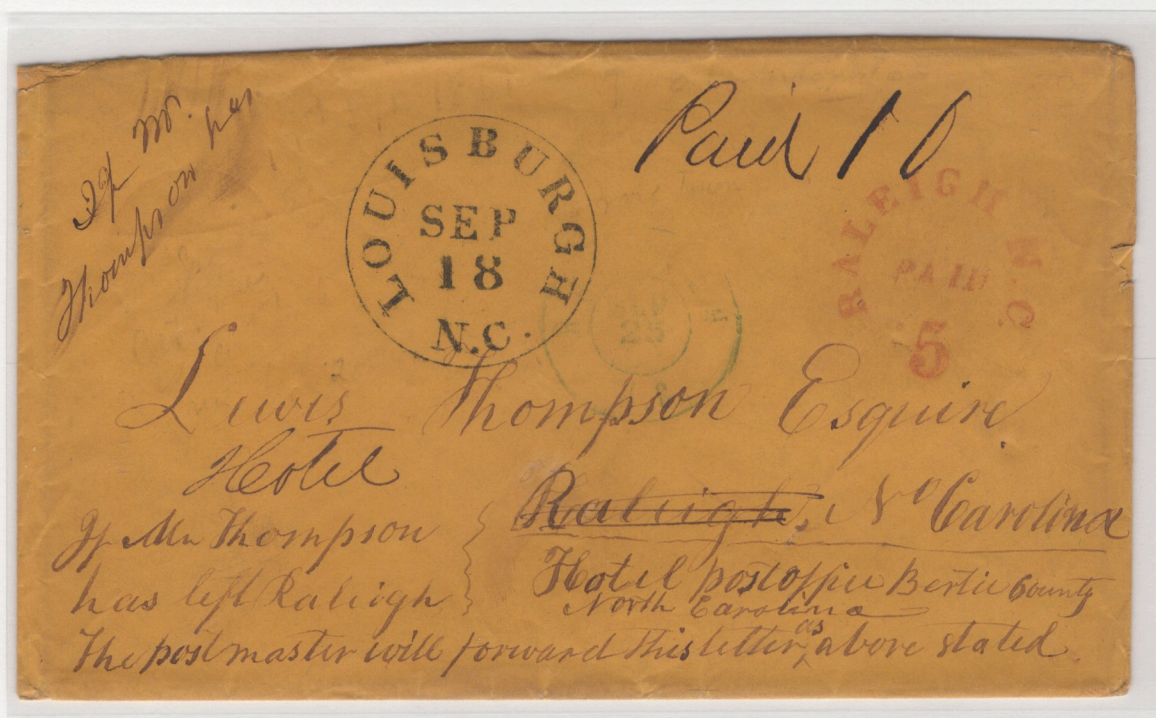 If Mr.
Thompson has
LOUISBURGH
SEP
18
N.C.
Paid 10
RALEIGH N.C.
PAID
5
25
Lewis Thompson Esquire
Hotel
Raleigh, No Carolina
If Mr Thompson
has left Raleigh
Hotel postoffice Bertie County
North Carolina
The postmaster will forward this letter, as above stated.